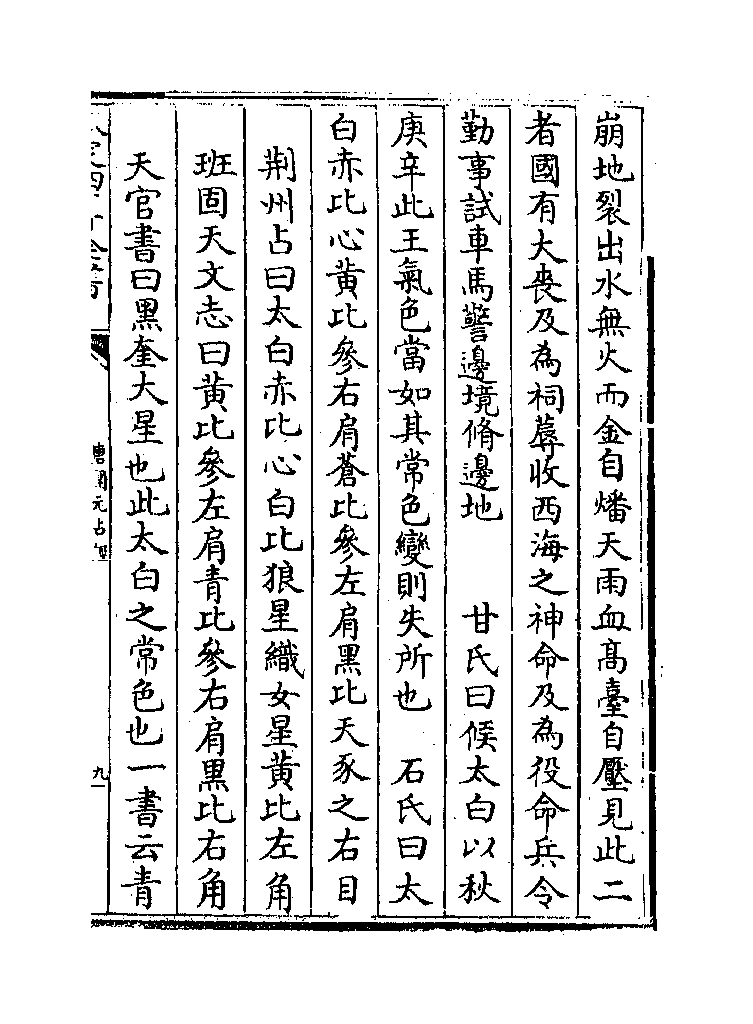 崩地裂出水無火而金自燔天雨血高臺自壓見此二
者國有大喪及為祠蓐收西海之神命及為役命兵令
勤事試車馬警邊境脩邊地　甘氏曰候太白以秋
庚辛此王氣色當如其常色變則失所也　石氏曰太
白赤比心黃比參右肩蒼比參左肩黑比天豕之右目
荆州占曰太白赤比心白比狼星織女星黃比左角
班固天文志曰黃比參左肩青比參右肩黑比右角
天官書曰黑奎大星也此太白之常色也一書云青
唐開元占經
九